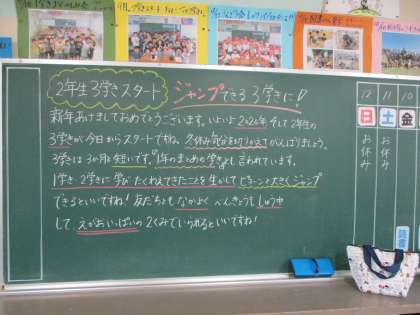 2年生3学きスタート
ジャンプできる3学きに!!
新年あけましておめでとうございます。いよいよ2026年そして2年生の
3学きが今日からスタートですね。冬休み気分を切りかえてがんばりましょう。
3学きは3か月と短いです。"1年のまとめの学き"とも言われています。
1学き、2学きに学びたくわえてきたことを生かしてピョーンと大きくジャンプ
できるといいですね!友だちともなかよく べんきょうもしゅう中
して、えがおいっぱいの2くみでいられるといいですね!
12 11 10
日 土 金
お休み お休み
読書